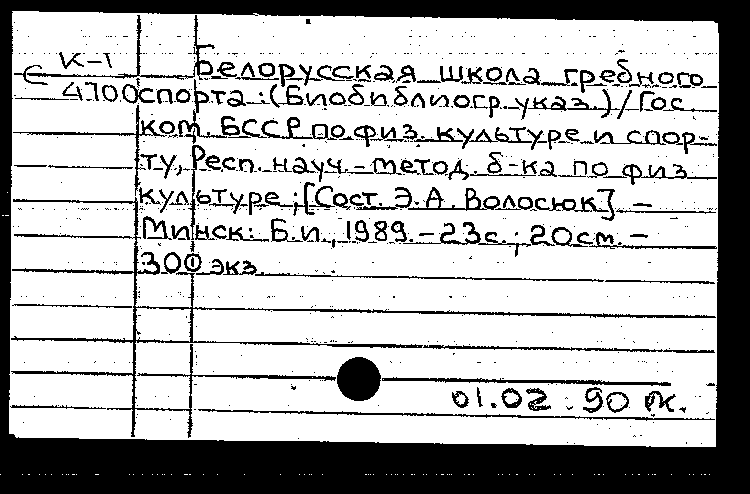 К-1
Є 4700
Белорусская школа гребного
спорта : (Биобиблиогр. указ.) / Гос.
ком. БССР по физ. культуре и спор-
ту, Респ. науч.-метод. б-ка по физ.
культуре ; [Сост. Э.А. Волосюк] –
Минск : Б.и., 1989. – 23с. ; 20см. –
300 экз.
01.02.90